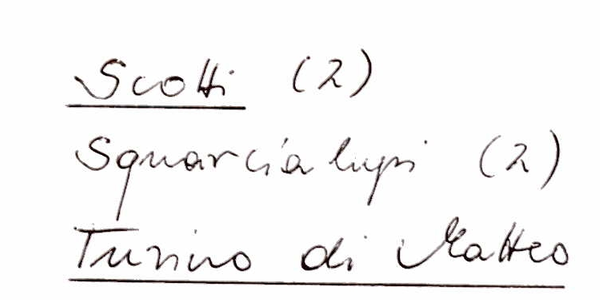 Scotti (2)
Squarcialupi (2)
Turino di Matteo